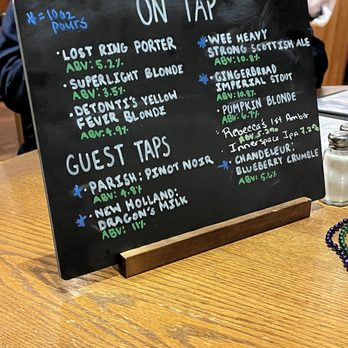 *=10oz
pours
ON TAP
· LOST RING PORTER
ABV: 5.2%
· SUPERLIGHT BLONDE
ABV: 3.5%
· DETONTI'S YELLOW
FEVER BLONDE
ABV: 4.9%
GUEST TAPS
* · PARISH: PINOT NOIR
ABV: 4.9%
* · NEW HOLLAND:
DRAGON'S MILK
ABV: 11%
* · WEE HEAVY
STRONG SCOTTISH ALE
ABV: 10.3%
* · GINGERBREAD
IMPERIAL STOUT
ABV: 10.8%
· PUMPKIN BLONDE
ABV: 6.7%
· Rebecca's 1st Ambr
ABV 5.2%
· Innerspace Ipa 7.2%
* · CHANDELEUR:
BLUEBERRY CRUMBLE
ABV: 5.6%